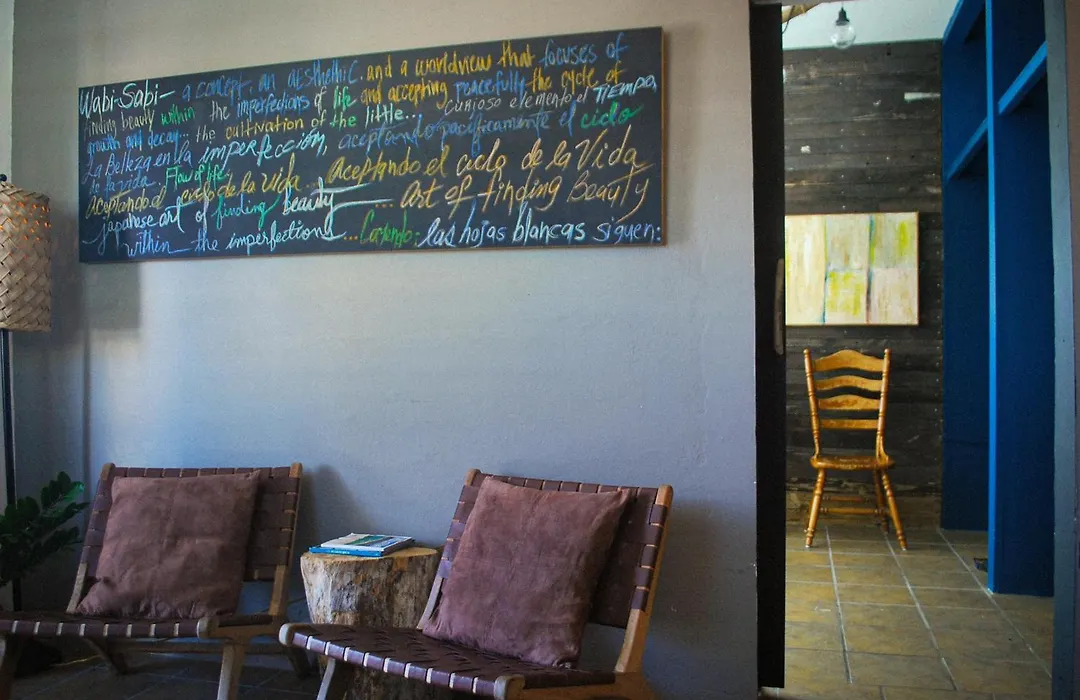 Wabi-Sabi- a concept, an aesthethic, and a worldview that focuses of
finding beauty within the imperfections of life and accepting peacefully the cycle of
growth and decay... the cultivation of the little... curioso elemento el Tiempo,
La Belleza en la imperfección, aceptando pacificamente el ciclo
de la vida. Flow of life. Aceptando el ciclo de la Vida
Aceptando el ciclo de la vida... Art of finding Beauty
japanese art of finding beauty
within the imperfections... Cortando: las hojas blancas siguen: